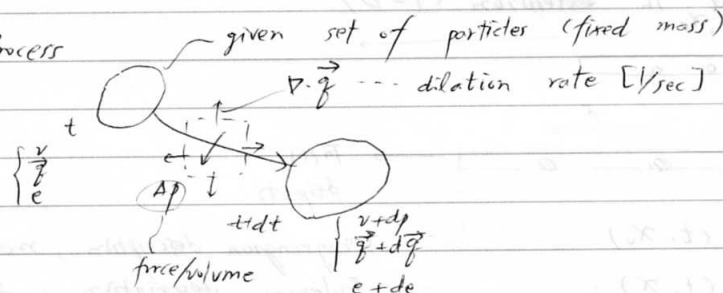 rocess
given set of particles (fixed mass)
∇·q⃗ --- dilation rate [1/sec]
t
{ v
q⃗
e
Δp
t+dt
force/volume
{ v+dp
q⃗+dq⃗
e+de